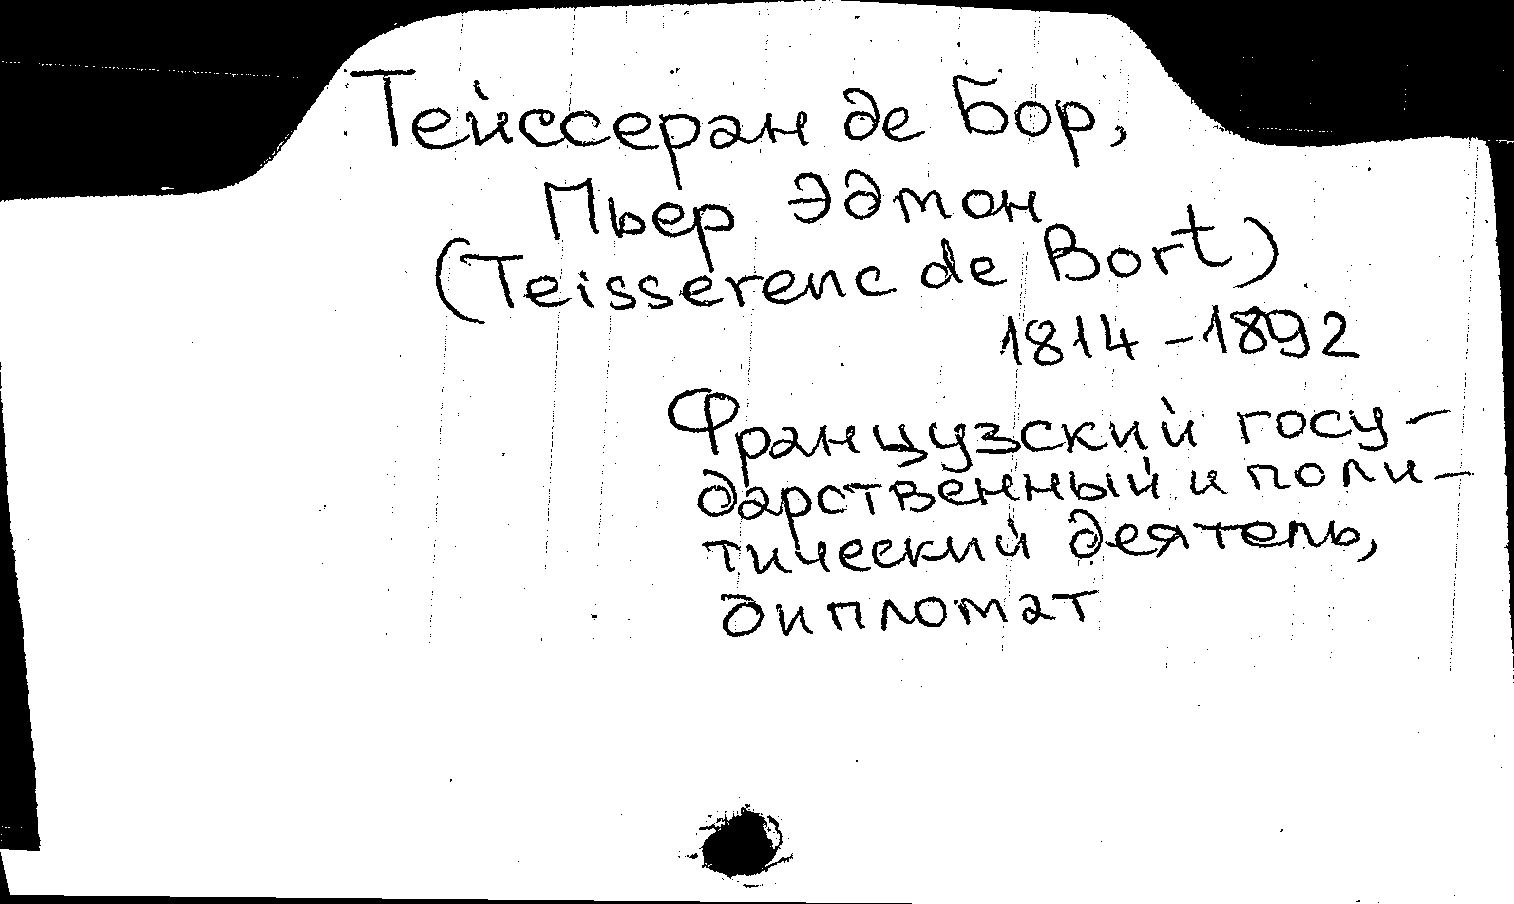 Тейссеран де Бор,
Пьер Эдмон
(Teisserenc de Bort)
1814-1892
Французский госу-
дарственный и поли-
тический деятель,
дипломат